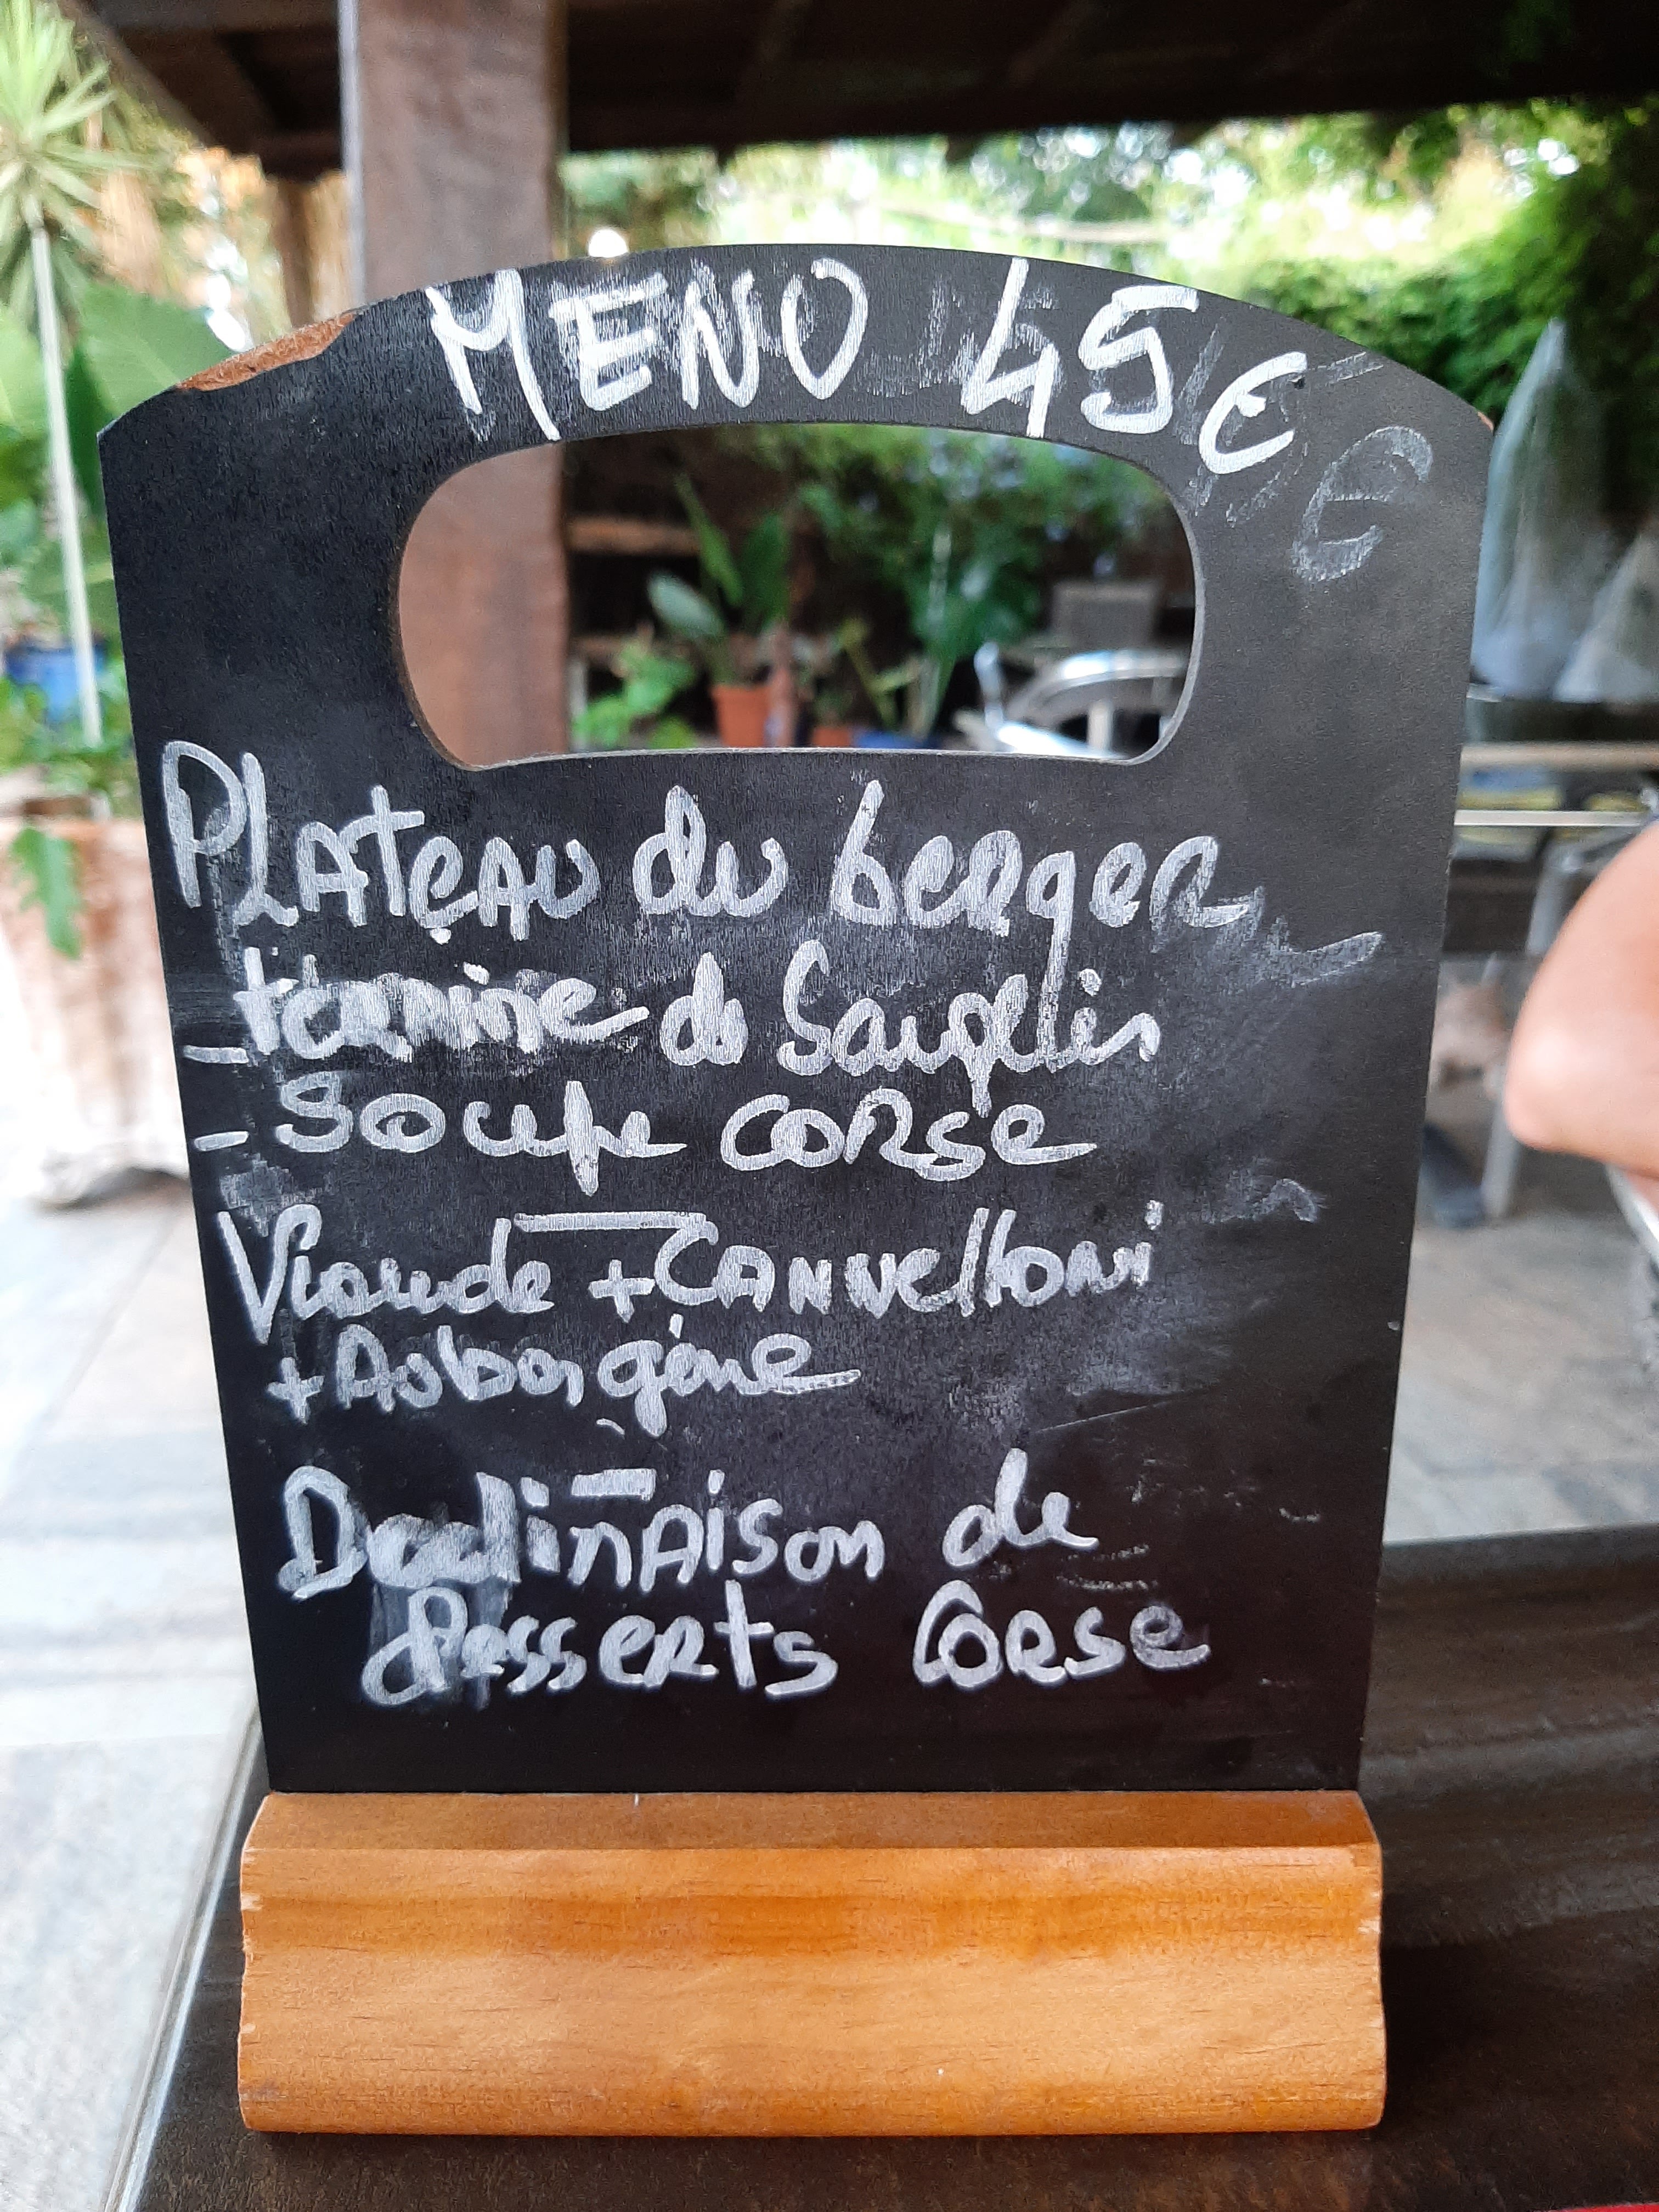 MENU 45€
PLATEAU du berger
- terrine de Sanglier
- Soupe CORSE
Viande + CANNELLONI
+ Aubergine
Declinaison de
desserts Corse